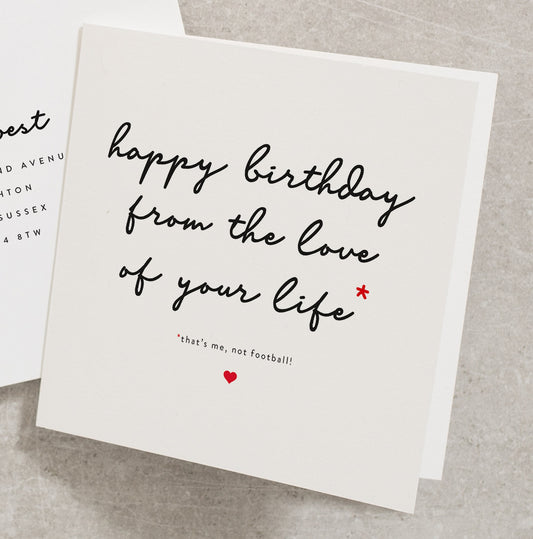 happy birthday
from the love
of your life*
*that's me, not football!
est
D AVENU
HTON
SUSSEX
4 8TW